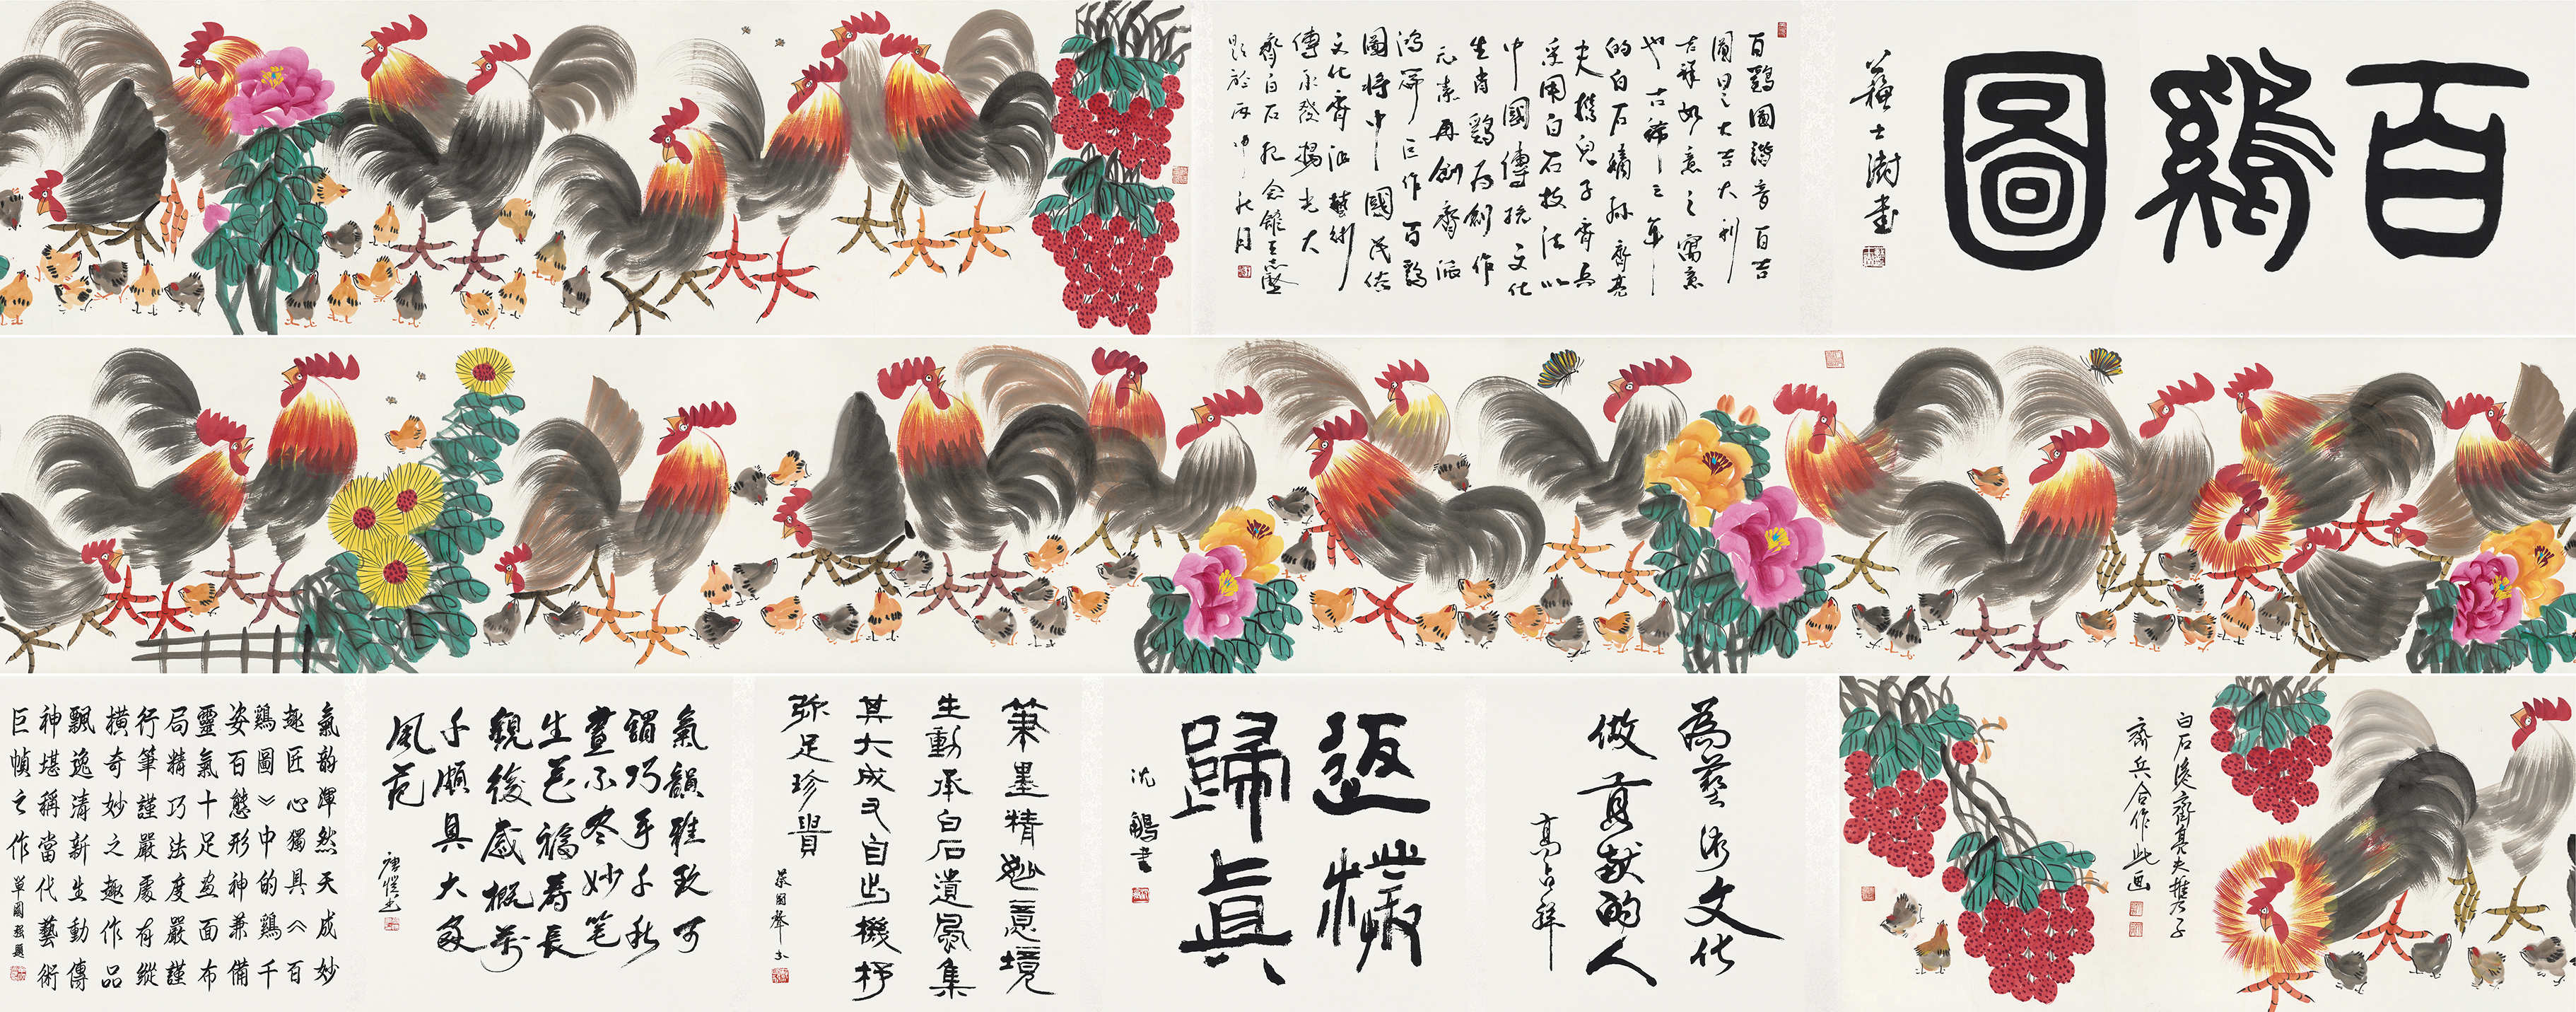 百鷄圖
蘇士澍書
百鷄圖諧音百吉
圖 大吉大利
吉祥如意之寓意
也古稀之年
的白石嫡孫齊亮
夫携兒子齊兵
采用白石技法以
中國傳統文化
生肖鷄為創作
元素再創齊派
鴻篇巨作百鷄
圖將中國民俗
文化齊派藝術
傳承發揚光大
齊白石紀念館王志堅
題於丙申秋月
白石後齊亮夫携犬子
齊兵合作此画
為藝術文化
做貢献的人
高占祥
返樸
歸真
沈鵬書
筆墨精妙意境
生動承白石遺風集
其大成又自出機杼
弥足珍貴
氣韻雅致可
謂巧手千秋
畫不盡妙笔
生花福壽長
觀後感概萬
千頗具大家
風范
氣韵渾然天成妙
趣匠心獨具《百
鷄圖》中的鷄千
姿百態形神兼備
靈氣十足画面布
局精巧法度嚴謹
行筆謹嚴處有縱
橫奇妙之趣作品
飄逸清新生動傳
神堪稱當代藝術
巨幀之作 單國強題